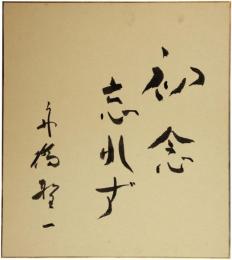 初念
忘れず
舟橋聖一